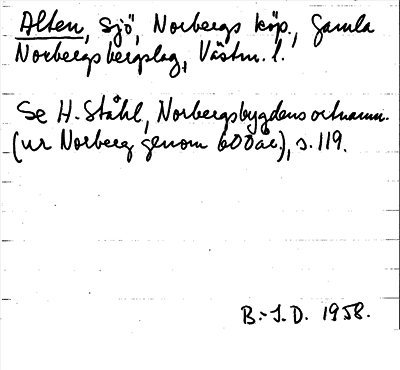 Alten, sjö, Norbergs köp., Gamla
Norbergs bergslag, Västm. l.
Se H. Ståhl, Norbergsbygdens ortnamn.
(ur Norberg genom 600 år), s. 119.
B.-J.D. 1958.